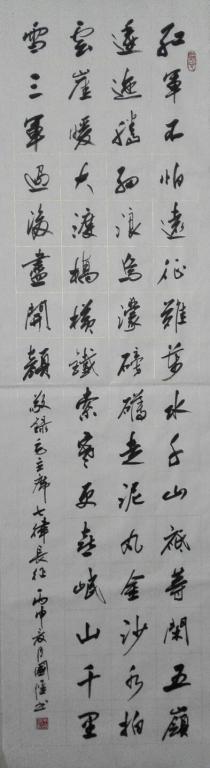 紅軍不怕遠征難萬水千山祇等閑五嶺
逶迤騰細浪烏濛磅礴走泥丸金沙水拍
雲崖暖大渡橋横鐵索寒更喜岷山千里
雪三軍過後盡開顏
敬録毛主席七律長征 丙申 月國 書